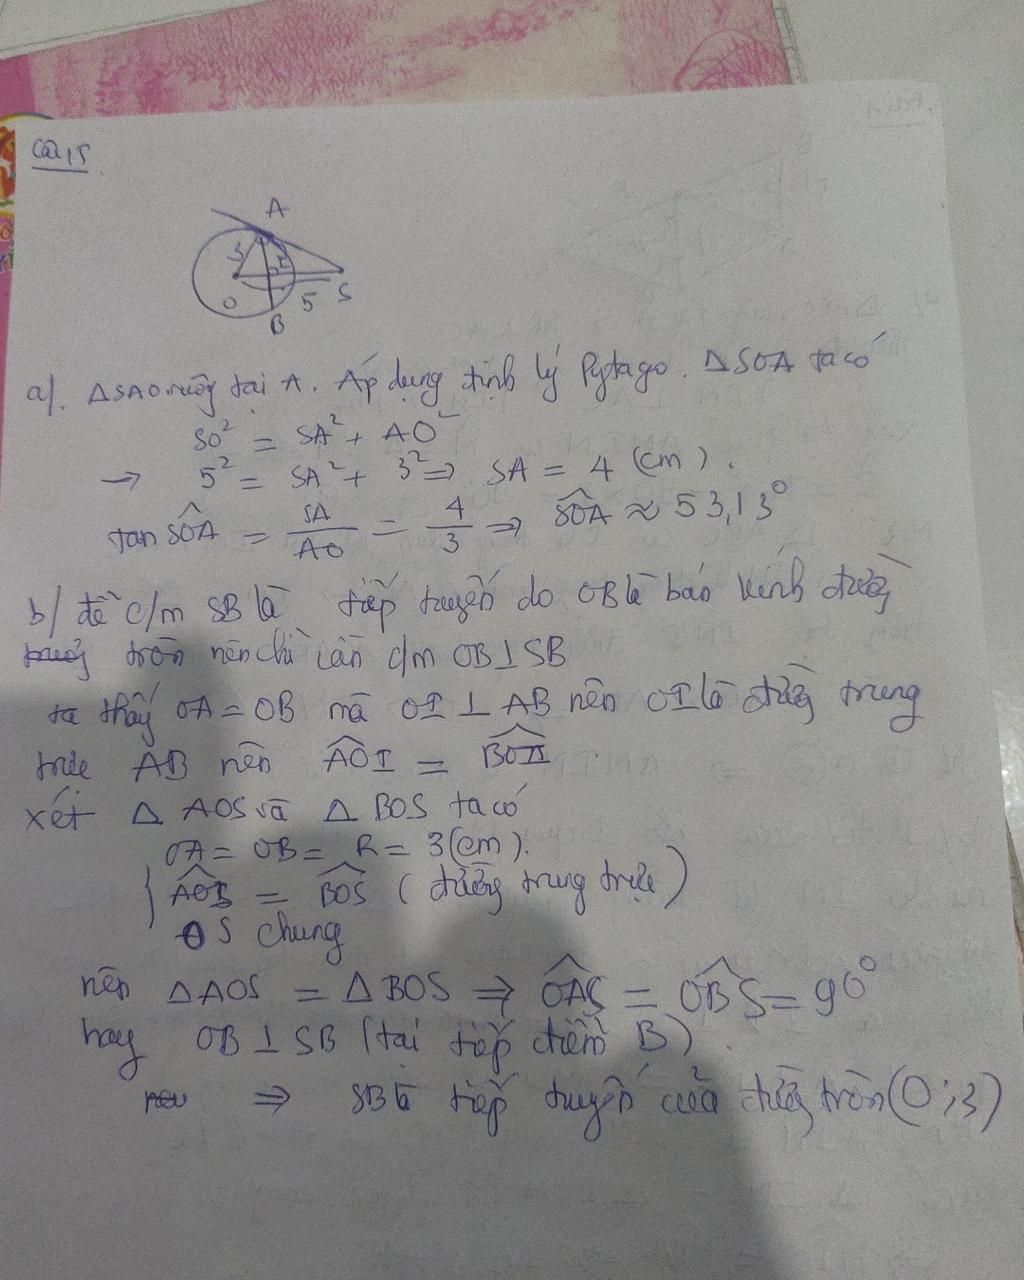 Câu 5
A
3
I
O
5
S
B
a). ΔSAO vuông tại A. Áp dụng định lý Pytago. ΔSOA ta có
SO² = SA² + AO²
→ 5² = SA² + 3² => SA = 4 (cm).
tan SÔA = SA/AO = 4/3 => SÔA ≈ 53,13°
b/ để c/m SB là tiếp tuyến do OB là bán kính đường
tròn nên chỉ cần c/m OB⊥SB
ta thấy OA = OB mà OI ⊥ AB nên OI là đường trung
trực AB nên AÔI = BÔI
xét Δ AOS và Δ BOS ta có
OA = OB = R = 3(cm).
AÔS = BÔS (đường trung trực)
OS chung
nên ΔAOS = ΔBOS => OÂS = OB̂S = 90°
hay OB⊥SB (tại tiếp điểm B).
=> SB là tiếp tuyến của đường tròn (O;3)